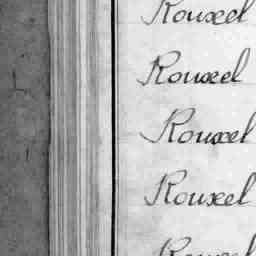 Rouxel
Rouxel
Rouxel
Rouxel
Rouxel